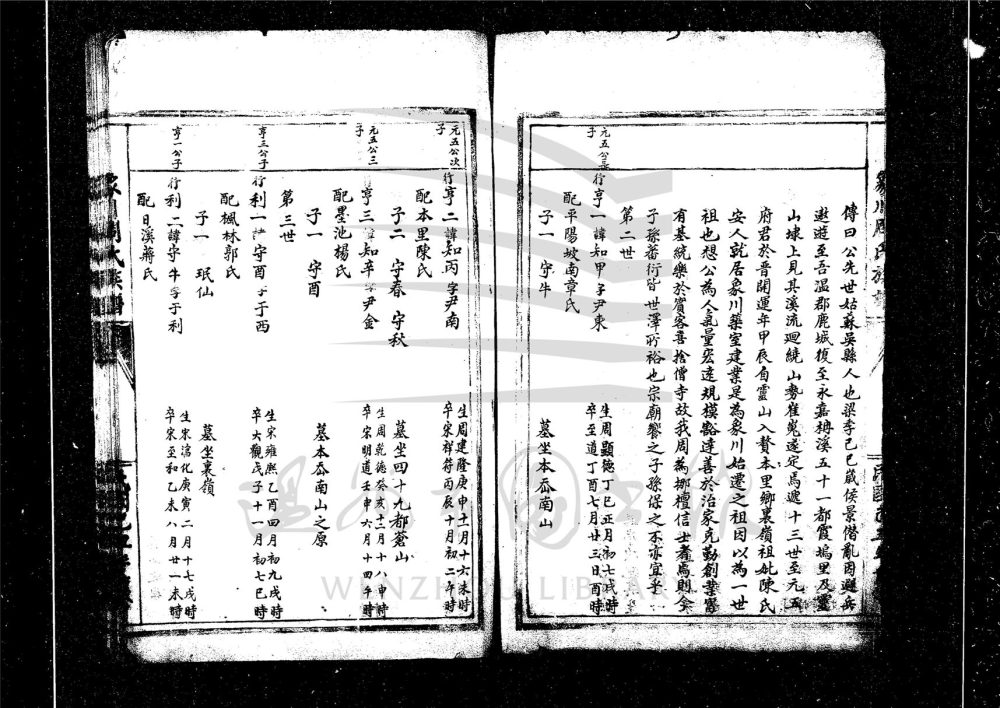 傳曰公先世姑蘇吳縣人也梁季己巳歲侯景僭亂因避兵
遨遊至吾溫郡鹿城復至永嘉枏溪五十一都霞塢里及
山埭上見其溪流迴繞山勢崔嵬遂定焉遞十三世至元五
府君於晉開運年甲辰自靈山入贅本里鄉裏嶺祖妣陳氏
安人就居象川築室建業是為象川始遷之祖因以為一世
祖也想公為人氣量宏遠規模豁達善於治家克勤創業
有基統樂於賓客喜捨僧寺故我周為挪檀信士耆焉則公
子孫蕃衍皆世澤所裕也宗廟饗之子孫保之不亦宜乎
第二世
元五公長子
行亨一諱知甲字尹東
生周顯德丁巳正月初七戌時
卒至道丁酉七月廿三日酉時
配平陽坡南章氏
子一 守牛
墓坐本岙南山
元五公次子
行亨二諱知丙字尹南
生周建隆庚申十一月十六未時
卒宋祥符丙辰十月初二午時
配本里陳氏
子二 守春 守秋
墓坐四十九都蒼山
元五公三子
行亨三諱知辛字尹金
生周乾德癸亥十二月十八申時
卒宋明道壬申六月十四午時
配墨池楊氏
子一 守酉
墓本岙南山之原
第三世
亨三公子
行利一諱守酉字于西
生宋雍熙乙酉四月初九戌時
卒大觀戊子十一月初七巳時
配楓林郭氏
子一 珉仙
墓坐裏嶺
亨一公子
行利二諱守牛字于利
生宋淳化庚寅二月十七戌時
卒宋至和乙未八月廿一未時
配日溪蔣氏
WENZHOU LIBRARY